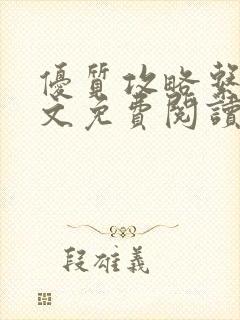 優質攻略繫
文免費閱讀
段雄義